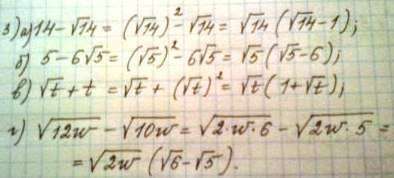 3) а) 14 - √14 = (√14)² - √14 = √14 (√14 - 1);
б) 5 - 6√5 = (√5)² - 6√5 = √5 (√5 - 6);
в) √t + t = √t + (√t)² = √t (1 + √t);
г) √12w - √10w = √2·w·6 - √2w·5 =
= √2w (√6 - √5).